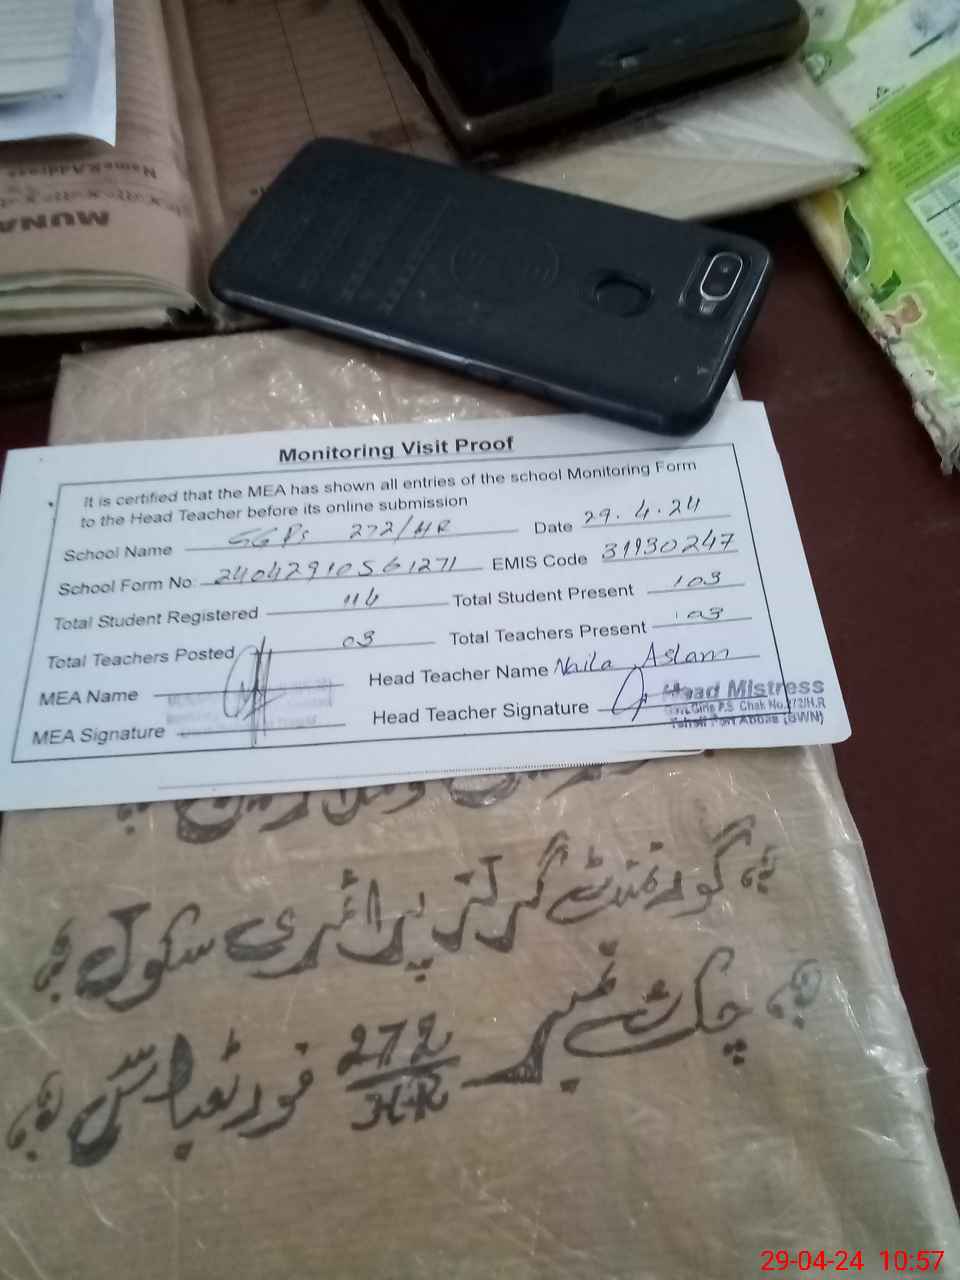 MUNA
Name & Address
Monitoring Visit Proof
It is certified that the MEA has shown all entries of the school Monitoring Form
to the Head Teacher before its online submission
School Name GGPs 272/HR Date 29.4.24
School Form No 24042910561271 EMIS Code 31930247
Total Student Registered 116 Total Student Present 103
Total Teachers Posted 03 Total Teachers Present 03
MEA Name Head Teacher Name Naila Aslam
MEA Signature Head Teacher Signature
Head Mistress
Govt. Girls P.S. Chak No.272/H.R
Tehsil Fort Abbas (BWN)
گورنمنٹ گرلز پرائمری سکول
چک نمبر 272/HR فورٹ عباس
29-04-24 10:57